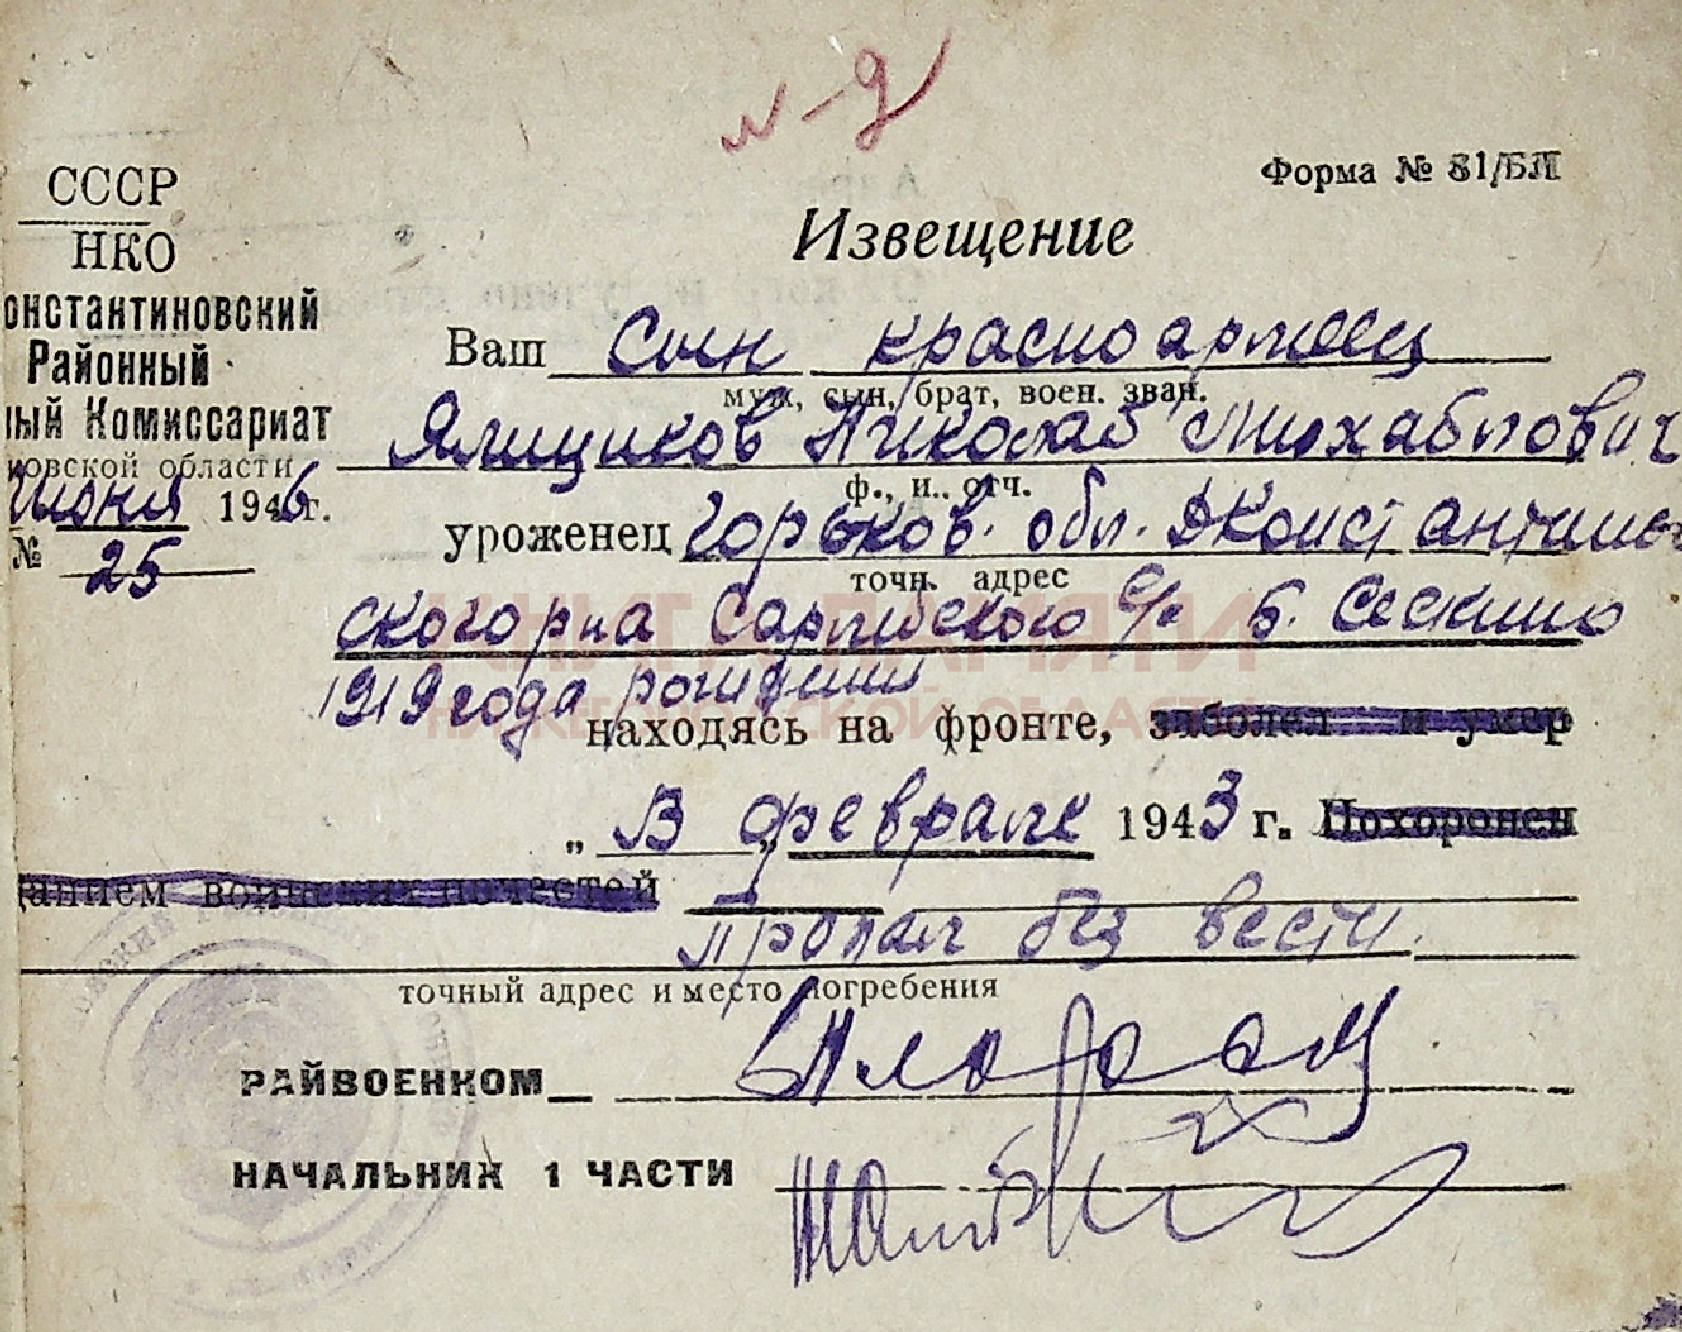 м-д
Форма № 81/БЛ
СССР
НКО
онстантиновский
Районный
ный Комиссариат
ковской области
июня 1946 г.
№ 25
Извещение
Ваш Сын красноармеец
муж, сын, брат, воен. зван.
Ялициков Николай Михайлович
ф., и.. отч.
уроженец Горьков. обл. Дконстантинов
точн. адрес
ского р-на Сарлейского с/с Б. Сескино
КНИГА ПАМЯТИ
НИЖЕГОРОДСКОЙ ОБЛАСТИ
1919 года рождения
находясь на фронте, заболел и умер
„ В „ феврале 1943 г. Похоронен
данием воинских почестей
Пропал без вести.
точный адрес и место погребения
РАЙВОЕНКОМ
НАЧАЛЬНИК 1 ЧАСТИ